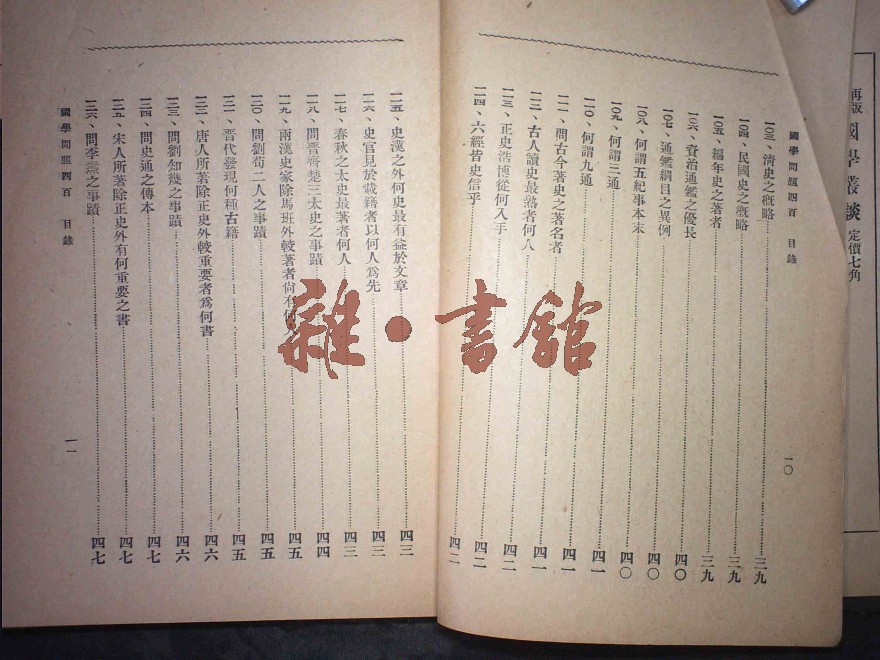 再版 國學叢談 定價七角
國學問題四百 目錄
一〇三、清史之概略 三九
一〇四、民國史之概略 三九
一〇五、編年史之著者 三九
一〇六、資治通鑑之優長 四〇
一〇七、通鑑綱目之異例 四〇
一〇八、何謂五紀事本末 四〇
一〇九、何謂三通 四一
一一〇、何謂九通 四一
一一一、問古今著史之著名者 四一
一一二、古人讀史最熟者何人 四一
一一三、正史浩博從何入手 四二
一一四、六經皆史信乎 四二
一〇
一一五、史漢之外何史最有益於文章 四三
一一六、史官見於載籍者以何人爲先 四三
一一七、春秋之太史最著者何人 四三
一一八、問晉齊楚三太史之事蹟 四四
一一九、兩漢史家除馬班外較著者尚有何人 四五
一二〇、問劉荀二人之事蹟 四五
一二一、晉代發現何種古籍 四五
一二二、唐人所著除正史外較重要者爲何書 四六
一二三、問劉知幾之事蹟 四六
一二四、問史通之傳本 四七
一二五、宋人所著除正史外有何重要之書 四七
一二六、問李燾之事蹟 四七
國學問題四百 目錄
一一
雜·書館